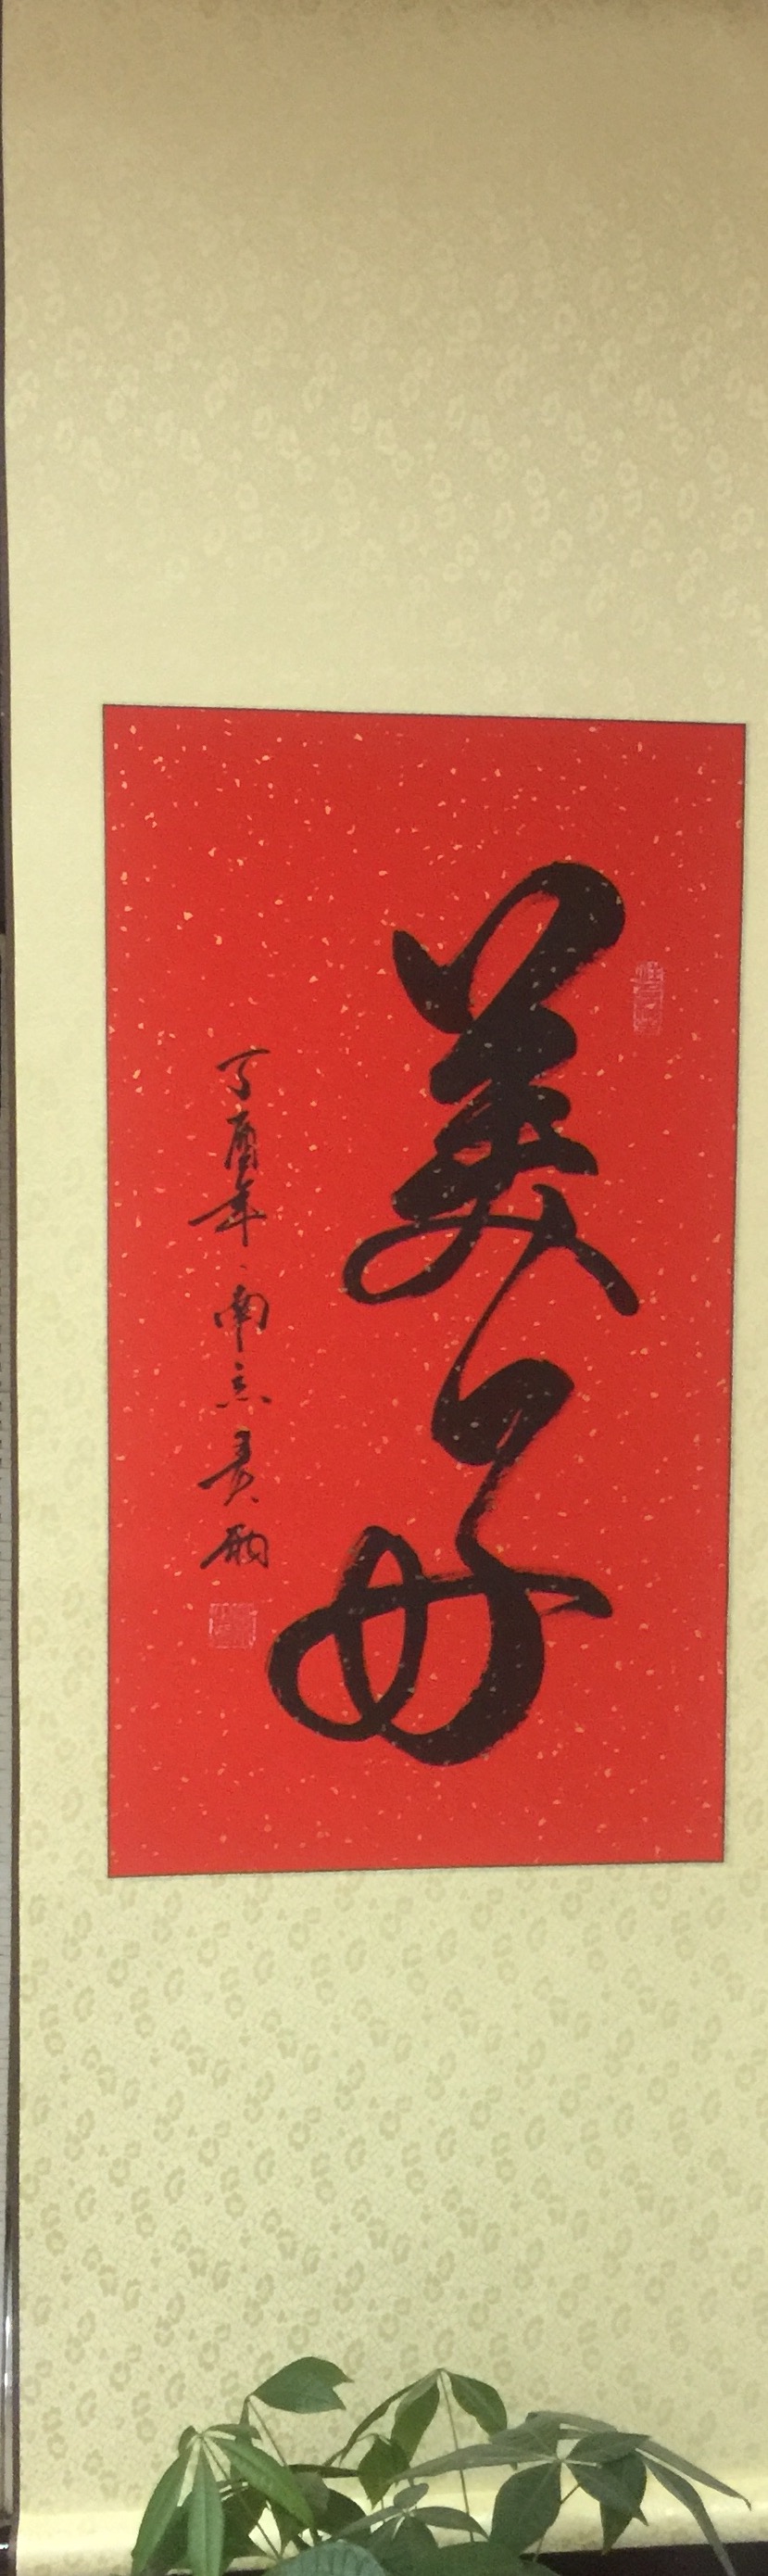 美好
丁酉年南京